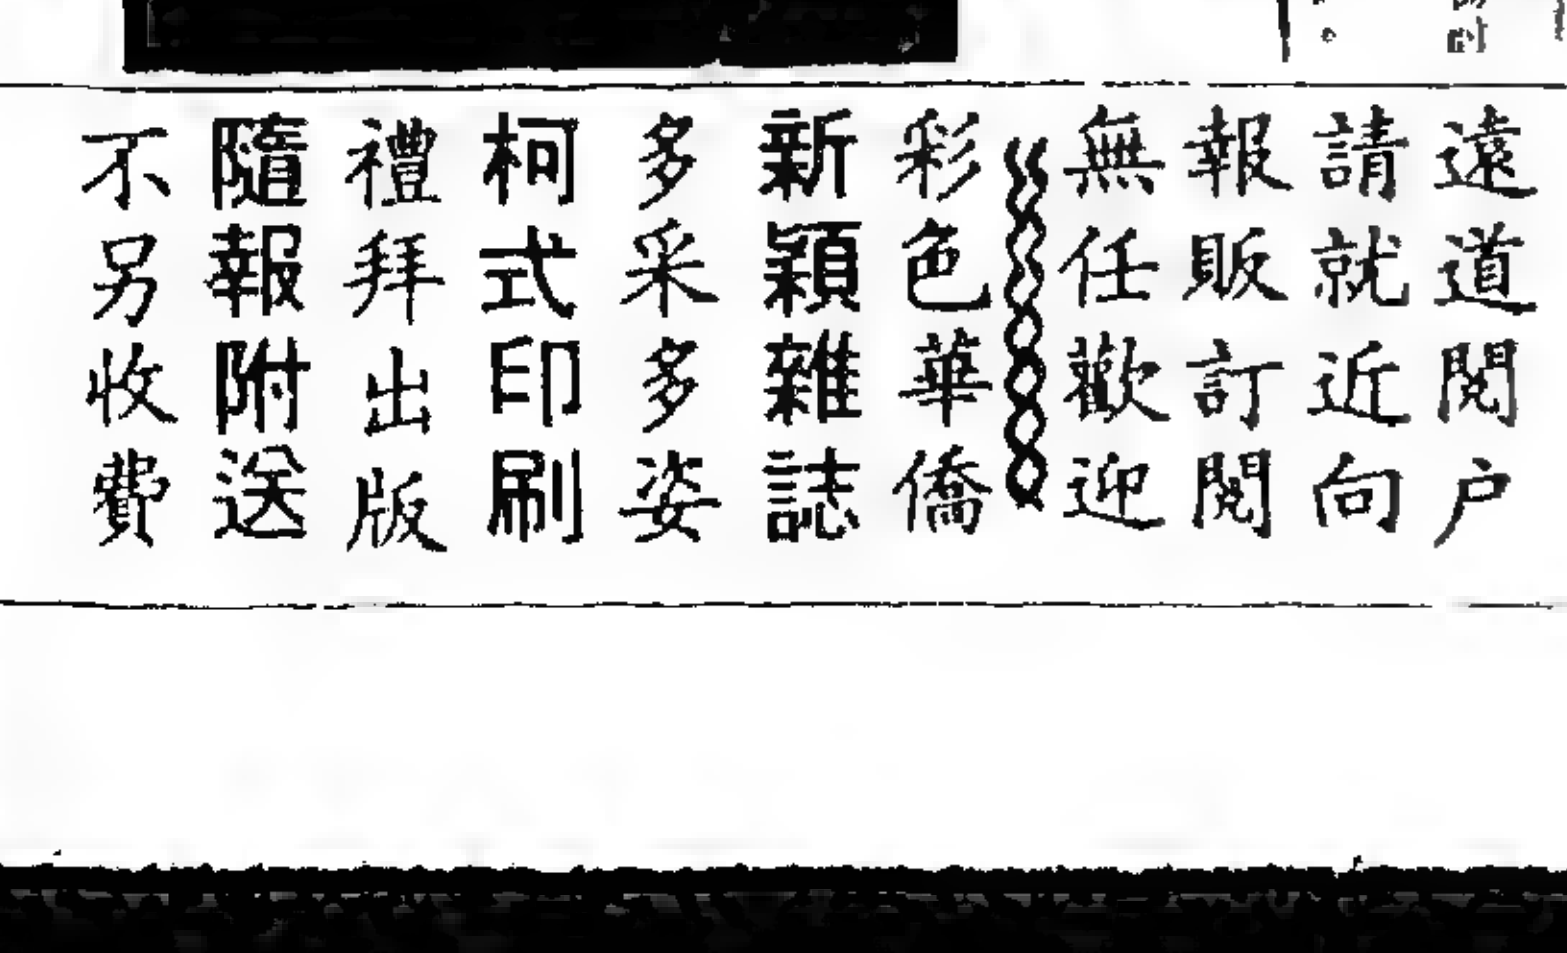 遠道閱户
請就近向
報販訂閱
無任歡迎
彩色華僑
新穎雜誌
多采多姿
柯式印刷
禮拜出版
隨報附送
不另收費